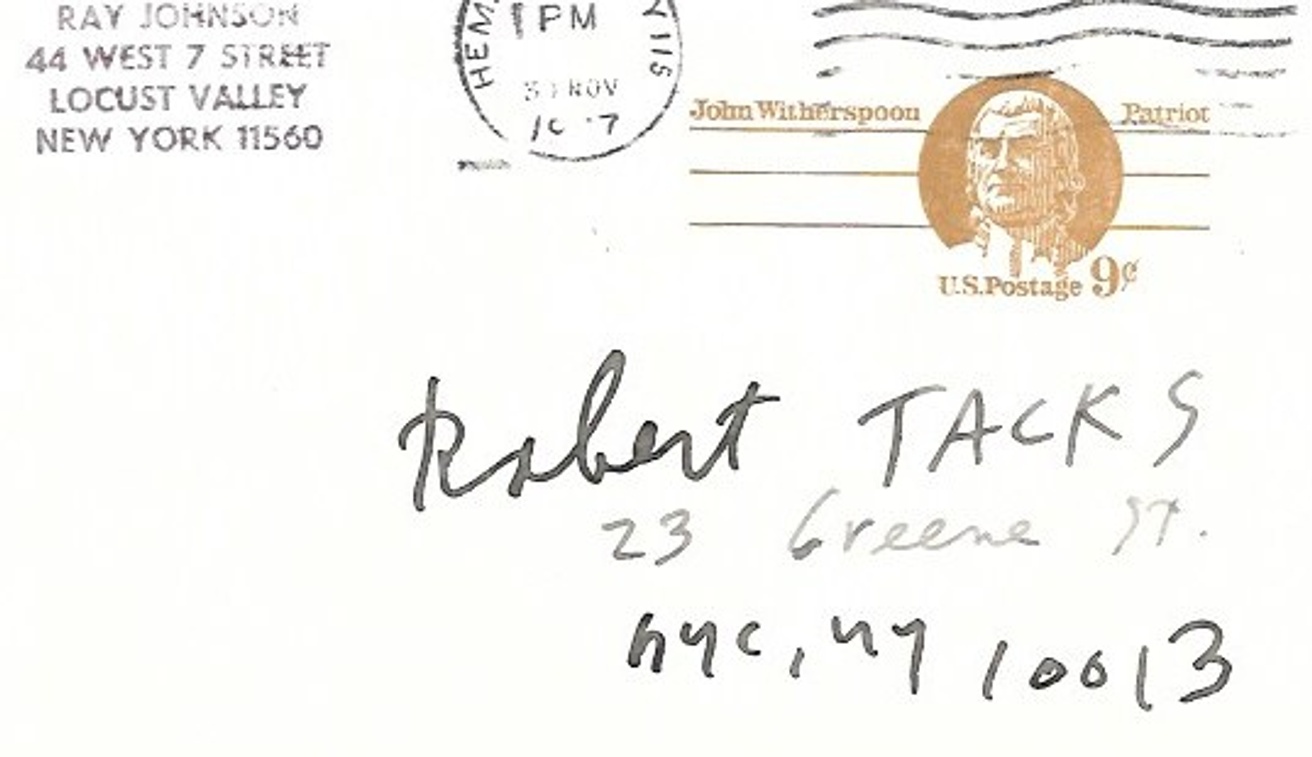 RAY JOHNSON
44 WEST 7 STREET
LOCUST VALLEY
NEW YORK 11560
HEM
PM
30 NOV
NY 115
John Witherspoon Patriot
U.S.Postage 9¢
Robert TACKS
23 Greene ST.
nyc, ny 10013